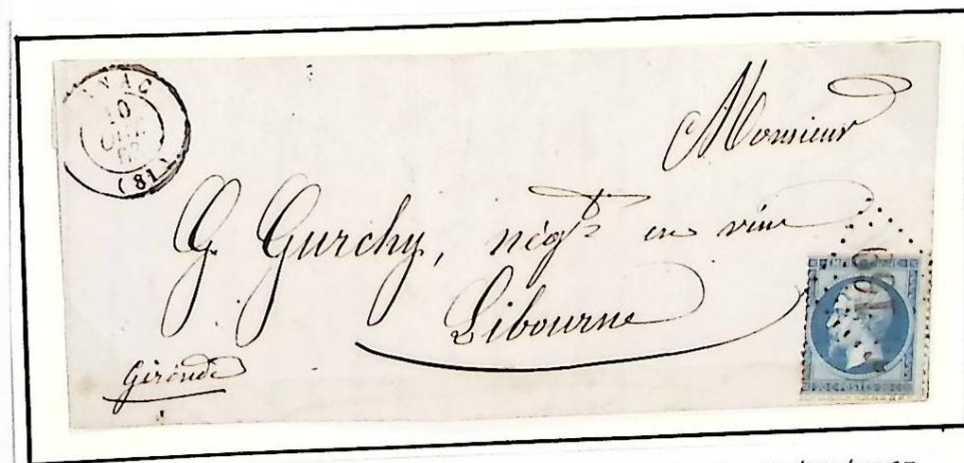 Monsieur
G. Gurchy, négt en vins
Libourne
Gironde
(81)